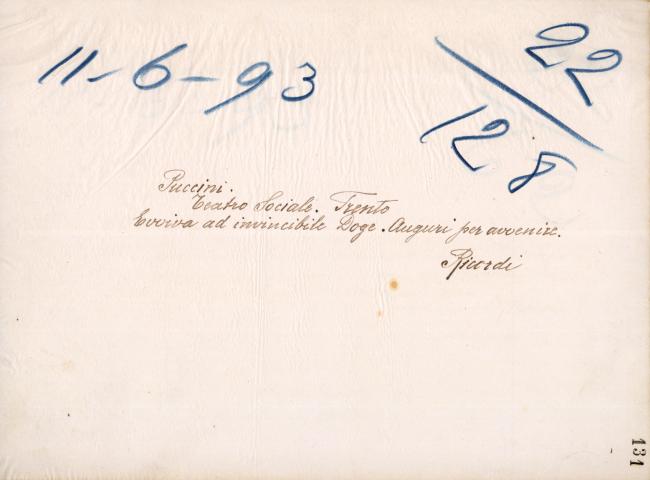 11-6-93
22/128
Puccini.
Teatro Sociale. Trento
Evviva ad invincibile Doge. Auguri per avvenire.
Ricordi
131